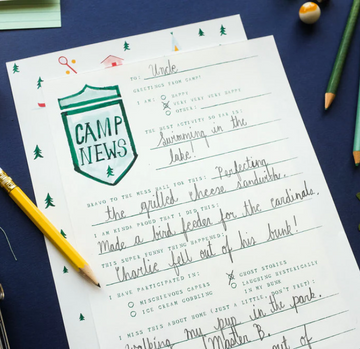 TO: Uncle
GREETINGS FROM CAMP!
I AM: HAPPY
VERY VERY VERY HAPPY
OTHER:
CAMP
NEWS
THE BEST ACTIVITY SO FAR IS:
Swimming in the
lake!
BRAVO TO THE MESS HALL FOR THIS: Perfecting
the grilled cheese sandwich.
I AM KINDA PROUD THAT I DID THIS:
Made a bird feeder for the cardinals.
THIS SUPER FUNNY THING HAPPENED:
Charlie fell out of his bunk!
I HAVE PARTICIPATED IN:
MISCHIEVOUS CAPERS
ICE CREAM GOBBLING
GHOST STORIES
LAUGHING HISTERICALLY
IN MY BUNK
I MISS THIS ABOUT HOME (JUST A LITTLE, WON'T LAST):
Walking my pup in the park.
Master B.
out of